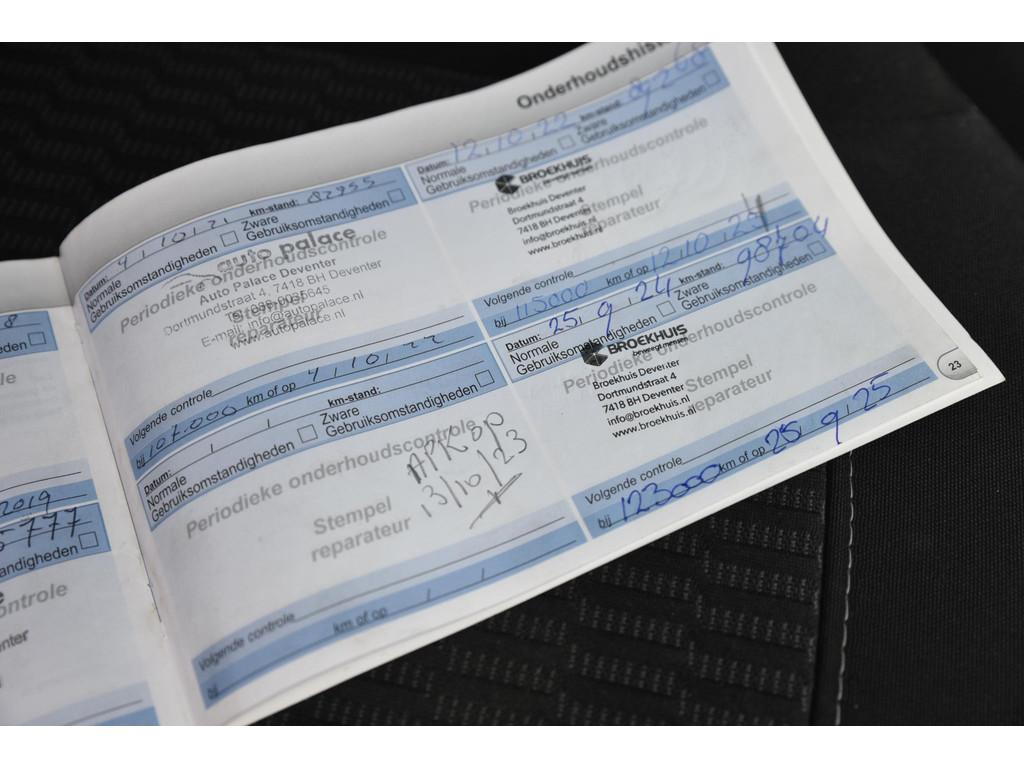 8
eden
le
2019
5777
andigheden
ontrole
enter
.nl
Onderhoudshist
Datum: 4, 10, 21 km-stand: 82955
Normale Zware
Gebruiksomstandigheden Gebruiksomstandigheden
auto palace
Periodieke onderhoudscontrole
Auto Palace Deventer
Dortmundstraat 4, 7418 BH Deventer
Stempel
E-mail: info@autopalace.nl
reparateur
www.autopalace.nl
Volgende controle
bij 107.000 km of op 4, 10, 22
Datum: / / km-stand:
Normale Zware
Gebruiksomstandigheden Gebruiksomstandigheden
Periodieke onderhoudscontrole
APK op
13/10/23
Stempel
reparateur
Volgende controle
bij km of op / /
Datum: 12, 10, 22 km-stand:
Normale Zware
Gebruiksomstandigheden Gebruiksomstandigheden
BROEKHUIS
Periodieke onderhoudscontrole
Broekhuis Deventer
Dortmundstraat 4
Stempel
7418 BH Deventer
reparateur
info@broekhuis.nl
www.broekhuis.nl
Volgende controle
bij 115000 km of op 12, 10, 24
Datum: 25, 9, 24 km-stand: 98704
Normale Zware
Gebruiksomstandigheden Gebruiksomstandigheden
BROEKHUIS
beweegt mensen
Periodieke onderhoudscontrole
Broekhuis Deventer
Dortmundstraat 4
7418 BH Deventer
Stempel
info@broekhuis.nl
reparateur
www.broekhuis.nl
Volgende controle
bij 123000 km of op 25, 9, 25
23